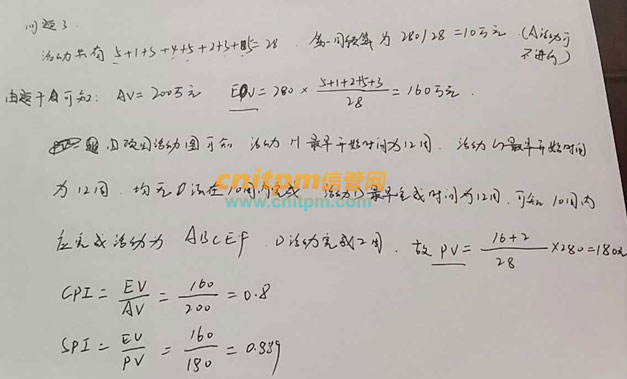 问题3
活动共有 5+1+3+4+5+2+3+5=28 每周预算为 280/28=10万元 (A活动可
不进行)
由题干可知: AV=200万元 EV=280×(5+1+2+5+3)/28=160万元.
由项目活动图可知 活动H最早开始时间为12周. 活动G最早开始时间
cnitpm信管网
为12周. 均无法在10周内完成 活动D最早完成时间为12周, 可知10周内
www.cnitpm.com
应完成活动为 ABCEF, D活动完成2周. 故PV=(16+2)/28×280=180
CPI=EV/AV=160/200=0.8
SPI=EV/PV=160/180=0.889